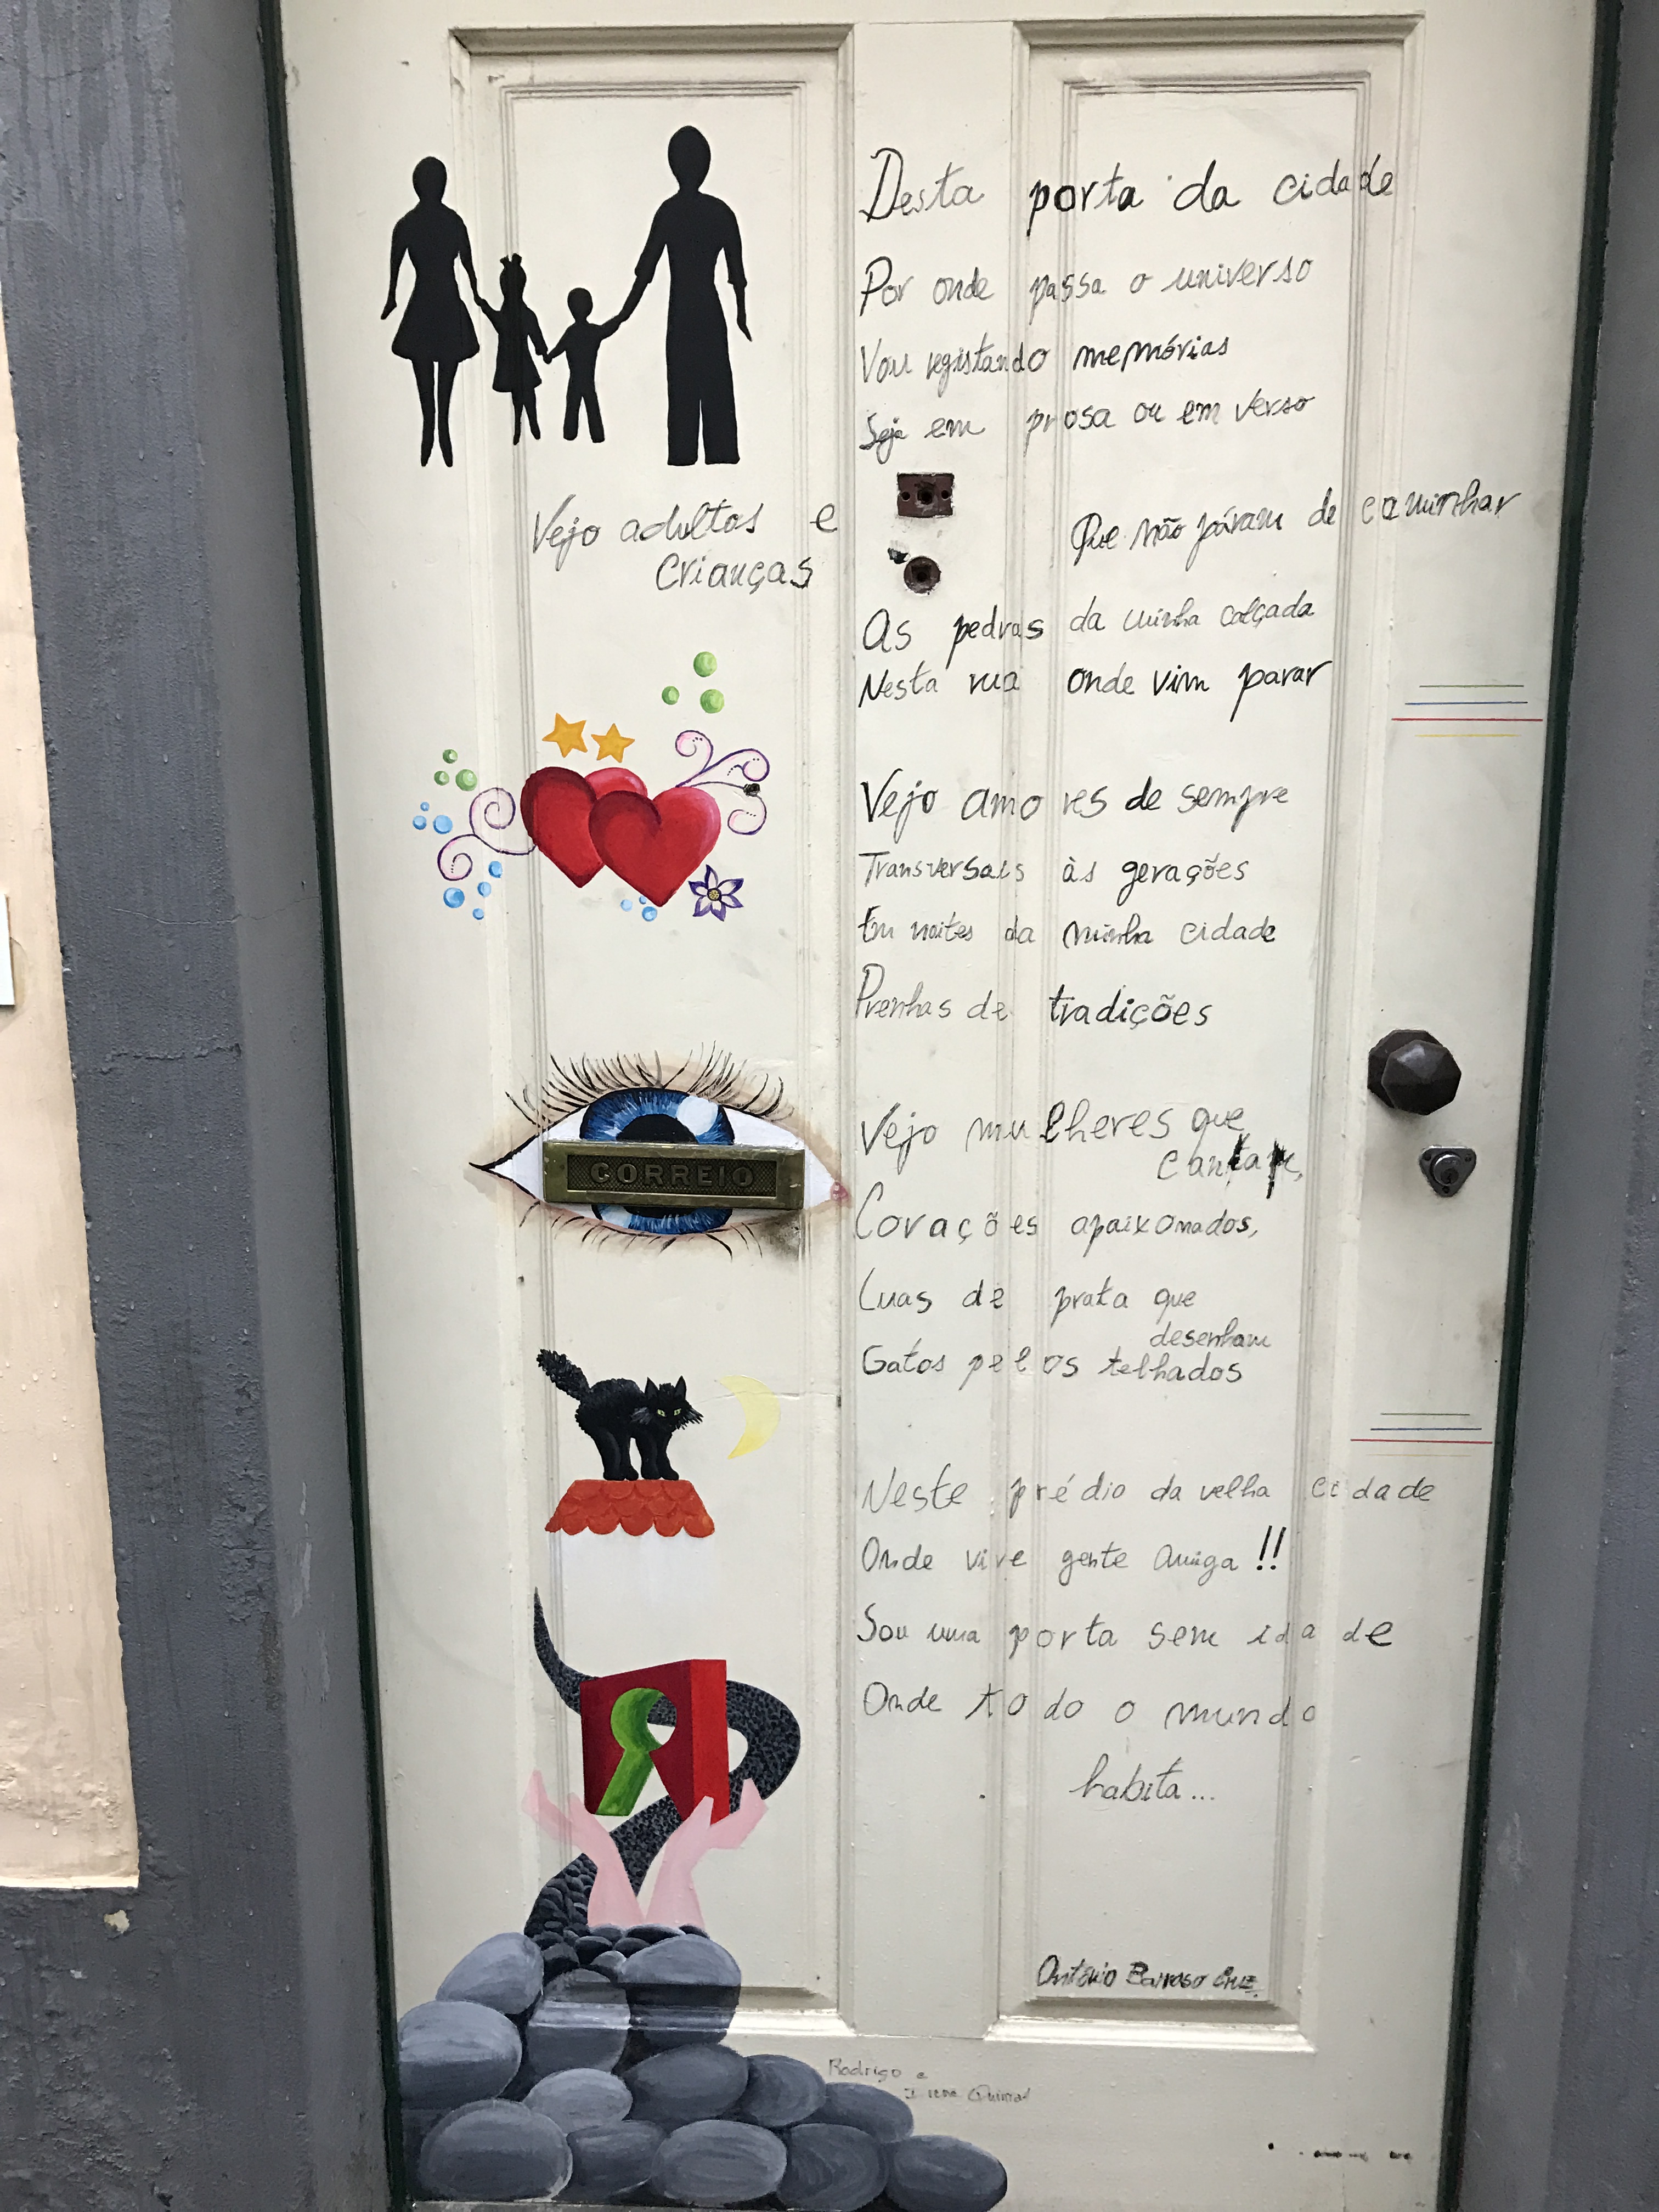 Desta porta da cidade
Por onde passa o universo
Vou registando memórias
Seja em prosa ou em verso
Vejo adultos e
crianças
Que não páram de caminhar
As pedras da minha calçada
Nesta rua onde vim parar
Vejo amores de sempre
Transversais às gerações
Em noites da minha cidade
Prenhas de tradições
Vejo mulheres que
cantam,
CORREIO
Corações apaixonados,
Luas de prata que
desenham
Gatos pelos telhados
Neste prédio da velha cidade
Onde vive gente amiga!!
Sou uma porta sem idade
Onde todo o mundo
habita...
António Barroso Cruz
Rodrigo e
Irene Quintal